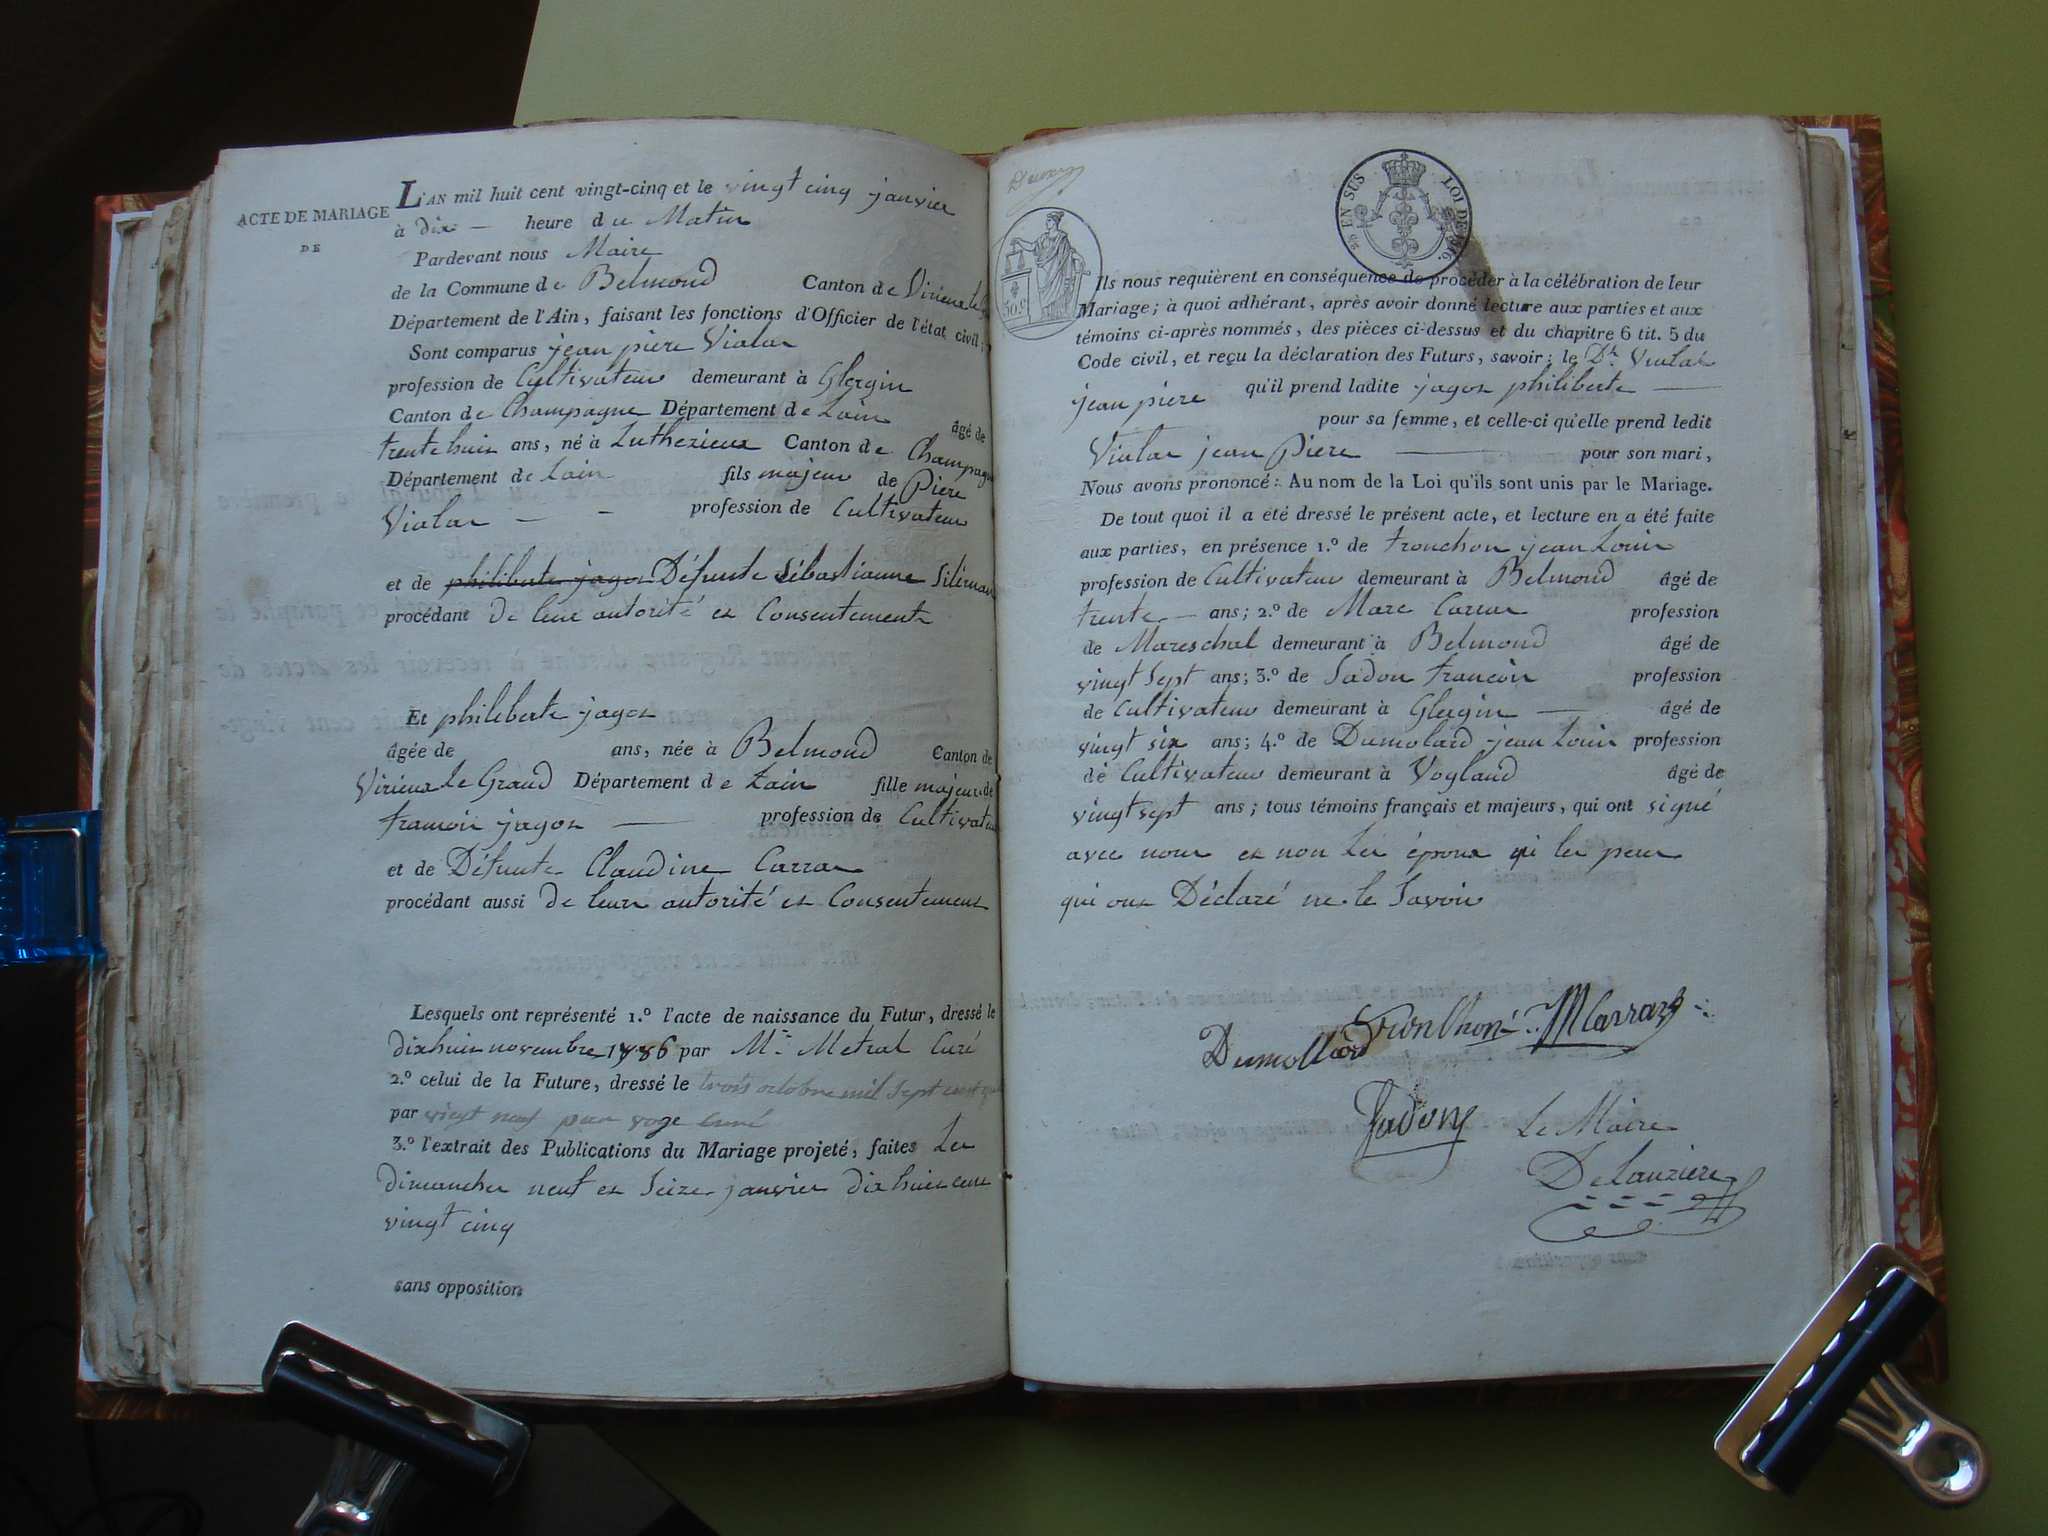 ACTE DE MARIAGE
DE
L'AN mil huit cent vingt-cinq et le vingt cinq janvier
à dix — heure du Matin
Pardevant nous Maire
de la Commune de Belmond Canton de Virieux le
Département de l'Ain, faisant les fonctions d'Officier de l'état civil;
Sont comparus jean piere Vialar
profession de Cultivateur demeurant à Glergin
Canton de Champagne Département de Lain âgé de
trente huis ans, né à Luthezieux Canton de Champagne
Département de Lain fils majeur de Piere
Vialar — - profession de Cultivateur
et de philiberte jagos Défunte Sébastianne
procédant de leur autorité es Consentements
Et philiberte jagos
âgée de ans, née à Belmond Canton de
Virieux le Grand Département de Lain fille majeure de
francois jagos — profession de Cultivateur
et de Défunte Claudine Carrar
procédant aussi De leurs autorité es Consentement
Lesquels ont représenté 1.º l'acte de naissance du Futur, dressé le
dixhuis novembre 1786 par Mr Metral Curé
2.º celui de la Future, dressé le trois octobre mil sept cent
par vingt neuf par voge curé
3.º l'extrait des Publications du Mariage projeté, faites Les
dimanches neuf es Seize janvier dix huis cens
vingt cinq
sans opposition
EN SUS LOI DE
50 c
Ils nous requièrent en conséquence de procéder à la célébration de leur
Mariage; à quoi adhérant, après avoir donné lecture aux parties et aux
témoins ci-après nommés, des pièces ci-dessus et du chapitre 6 tit. 5 du
Code civil, et reçu la déclaration des Futurs, savoir: le Dt. Vialar
jean piere qu'il prend ladite jagos philiberte —
pour sa femme, et celle-ci qu'elle prend ledit
Vialar jean Piere — pour son mari,
Nous avons prononcé: Au nom de la Loi qu'ils sont unis par le Mariage.
De tout quoi il a été dressé le présent acte, et lecture en a été faite
aux parties, en présence 1.º de tronchon jean Louis
profession de Cultivateur demeurant à Belmond âgé de
trente — ans; 2.º de Marc Carrar profession
de Mareschal demeurant à Belmond âgé de
vingt Sept ans; 3.º de Jadon francois profession
de Cultivateur demeurant à Glergin — âgé de
vingt six ans; 4.º de Dumolard jean Louis profession
de Cultivateur demeurant à Vogland âgé de
vingt sept ans; tous témoins français et majeurs, qui ont signé
avec nous es non les époux ni les peres
qui ons Déclaré ne le Savoir
Dumollard Tronchon M Carraz
Jadon Le Maire
Delauziere